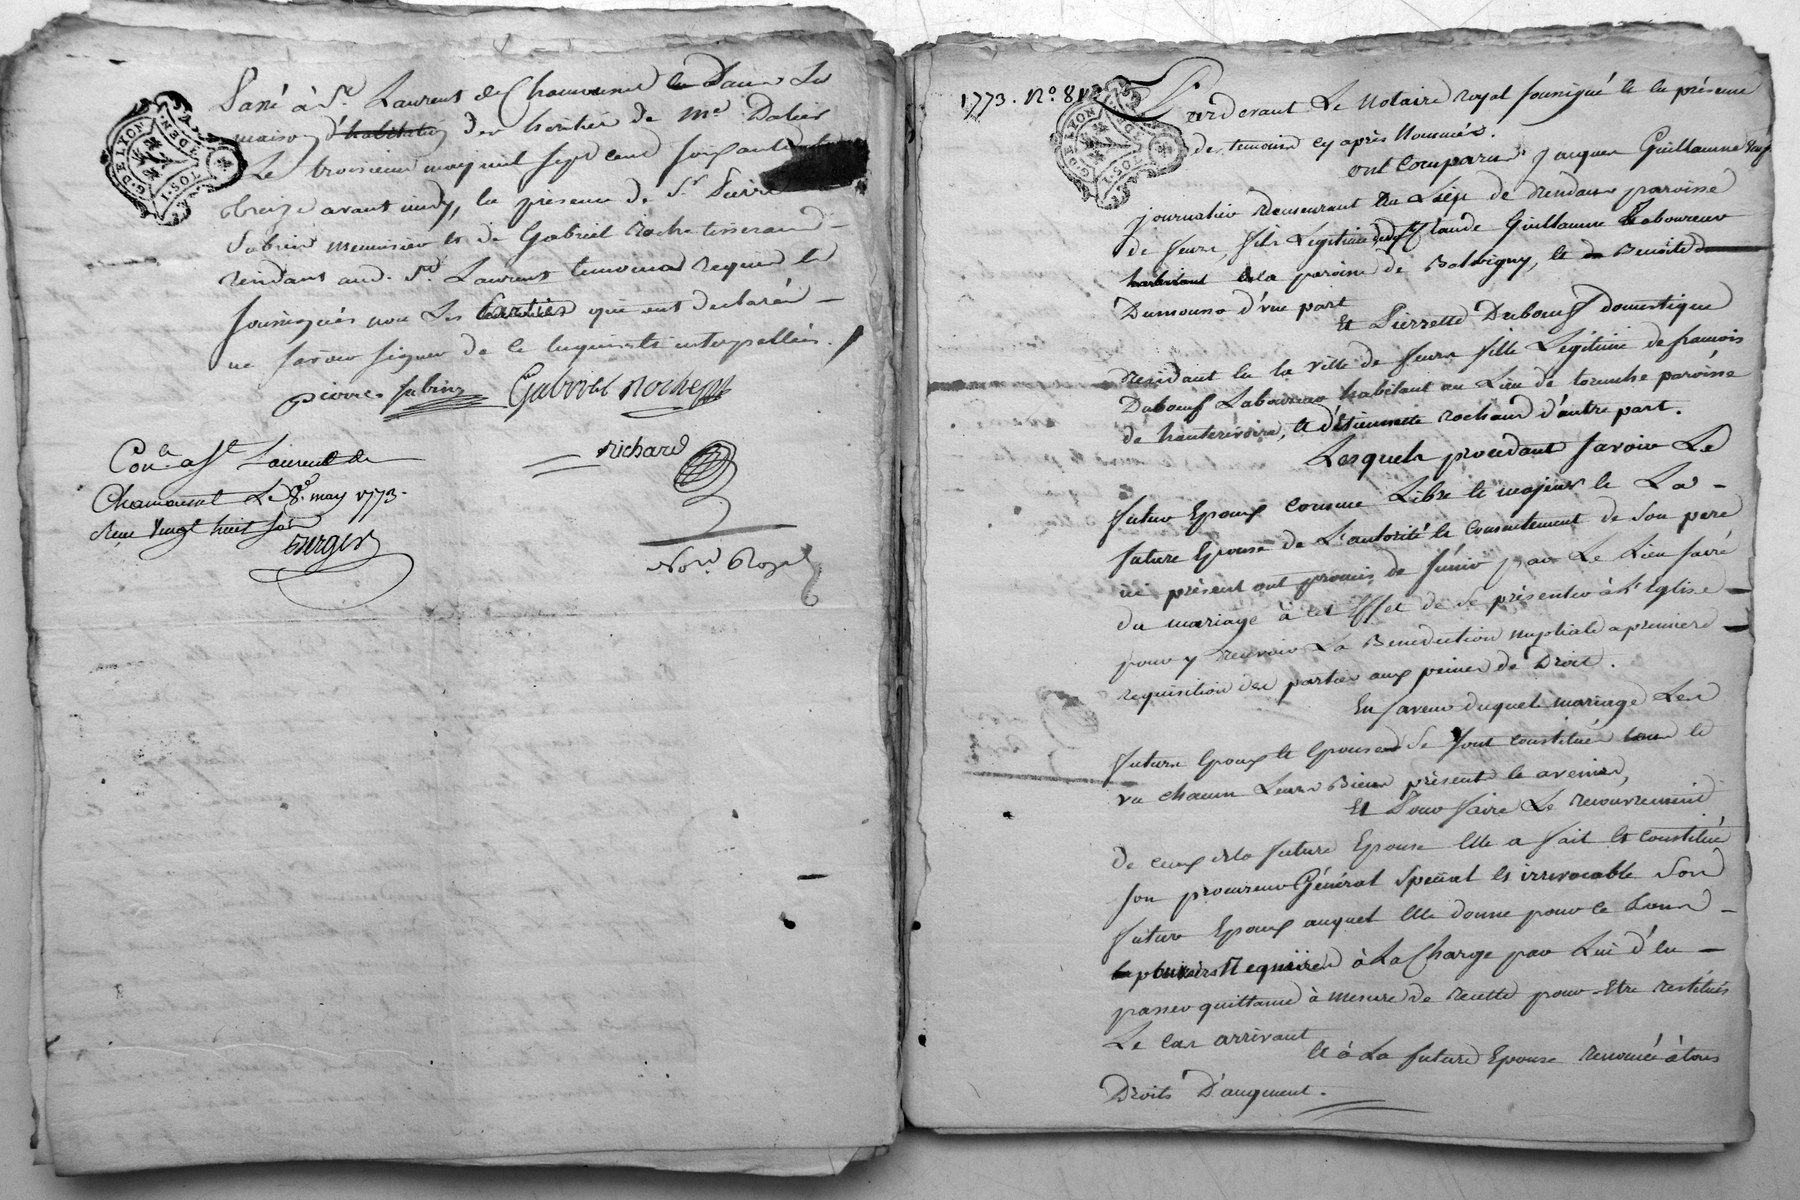 G. DE LYON
DEN. TOS.
Passé à St. Laurent de Chamousset dans la
maison d'habitation des heritiers de me
Le troisieme may mil sept cent soixante
treize avant midy, en présence de Sr. Pierre
Subrin menuisier et de Gabriel Roche tisserand
résidants aud. St. Laurent temoins requis et
soussignés non Les Parties qui ont declaré
ne savoir signer de ce enquises et interpellées.
pierre subrin Gabriel Roche
richard
Not. Royal
Con.lé a St. Laurent de
Chamousset Le 8.e may 1773.
Reçu vingt huit sols
1773. N.o
G. DE LYON
DEN. TOS.
Pardevant Le Notaire royal soussigné et en présence
de temoins cy après Nommés.
ont Comparus jacques Guillaume
journalier demeurant au Lieu de Rendans paroisse
de feurs fils Légitime de Claude Guillaume Laboureur
habitant de la paroisse de Balbigny, et de Benoite
Dumousse d'une part
Et Pierrette Duboeuf domestique
Résidant en la ville de feurs fille Légitime de francois
Duboeuf Laboureur habitant au Lieu de paroisse
de hauterivoire, et d'Etiennette Rochand d'autre part.
Lesquels procedant savoir Le
futur Epoux comme Libre et majeur et La
future Epouse de L'autorité et Consentement de Son pere
ici présent ont promis de s'unir par Le Lien sacré
du mariage à cet Effet de se présenter à L'Eglise
pour y recevoir La Benediction nuptiale a premiere
requisition des parties aux peines de Droit.
En faveur duquel mariage Les
futurs Epoux et Epouse Se sont constitués
un chacun Leurs Biens présents et avenirs,
Et Pour faire Le recouvrement
de ceux de la future Epouse Elle a fait et constitué
son procureur Général Special et irrevocable Son
futur Epoux auquel Elle donne pour ce tous
pouvoirs Requis à La Charge par Lui d'en
passer quittance à mesure de recette pour Etre restitués
Le cas arrivant
Et à La future Epouse renoncé à tous
Droits D'augment.